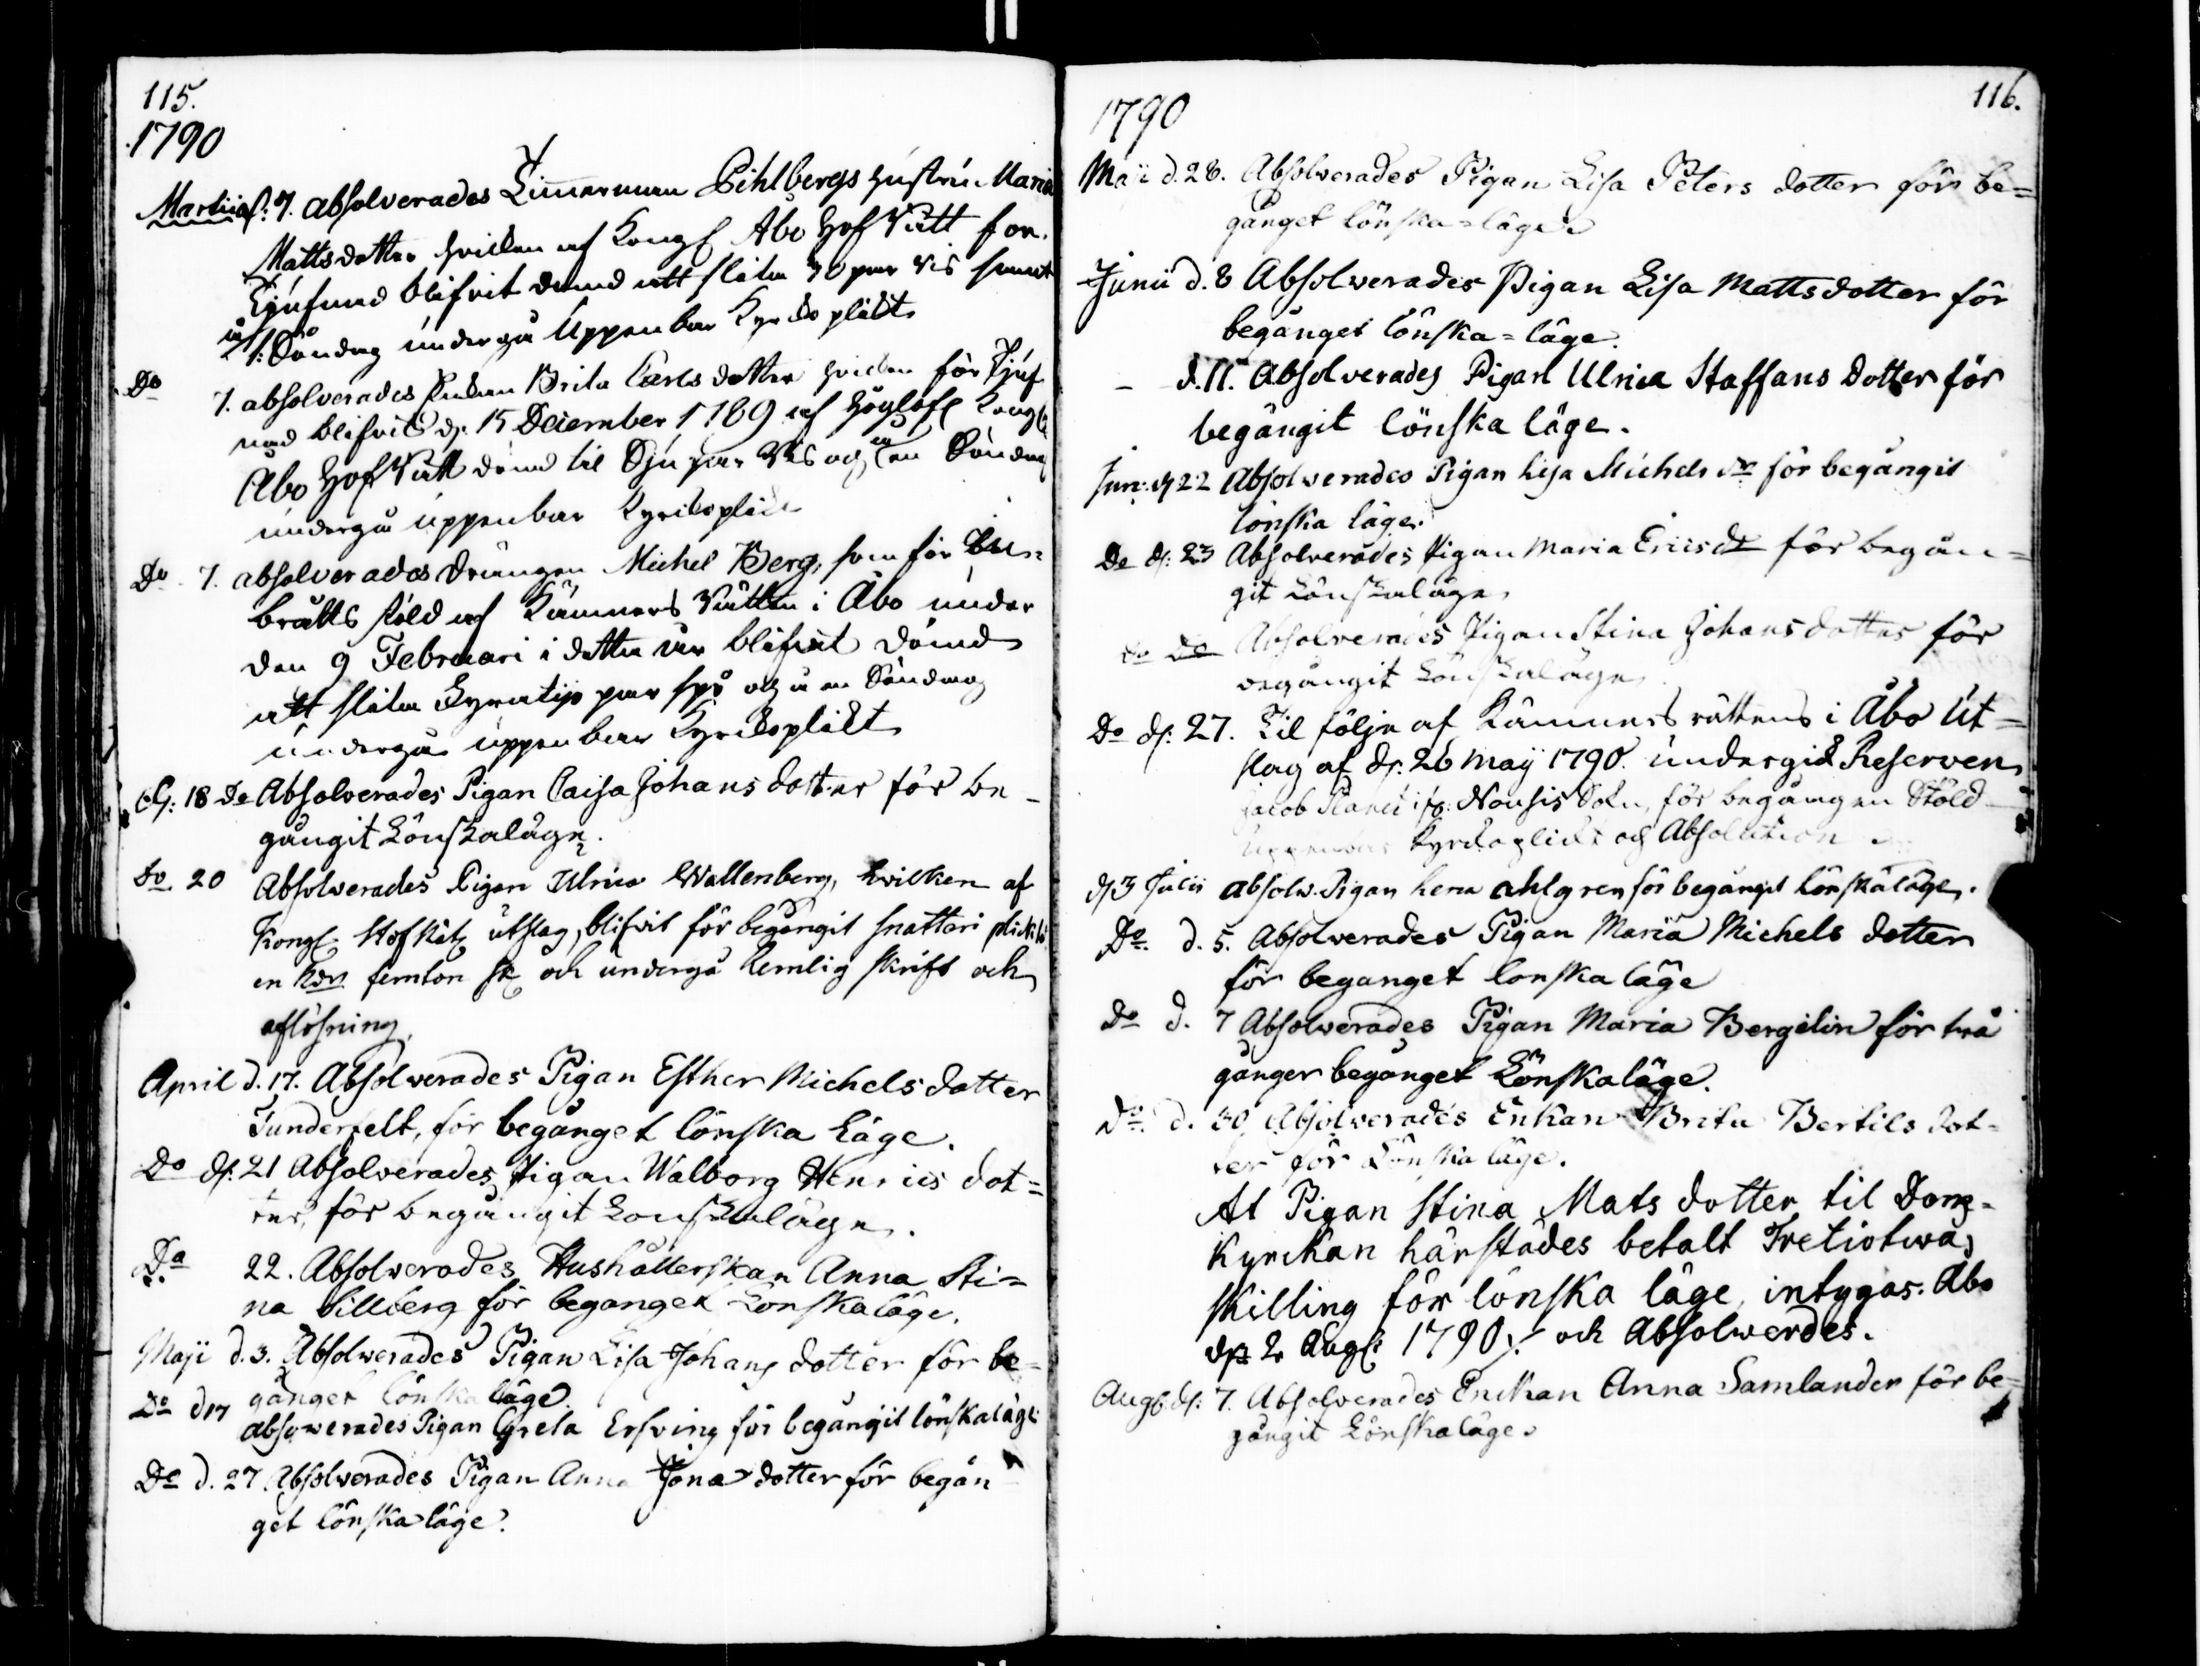 115.
1790
Martii d: 7. absolverades Timmerman Pihlbergs hustru Maria
Mattsdotter hvilken af Kongl Åbo Hof Rätt för
Tjufnad blifvit dömd att slita 10 par ris samt
å 1: Söndag undergå uppenbar Kyrko plikt
Do 7. absolverades Enkan Brita Carls dotter hvilken för Tjuf
nad blifvit d: 15 December 1789 af Höglofl Kongl:
Åbo Hof Rätt dömd til Sju par Ris och en Söndag
undergå uppenbar Kyrkoplikt
Do 7. absolverades Drängen Michel Berg, som för In=
brotts stöld af Kämners Rätten i Åbo under
den 9 Februari i detta år blifvit dömd
att slita Fyratijo par spö och å en Söndag
undergå uppenbar Kyrkoplikt
d: 18 de Absolverades Pigan Caisa Johans dotter för be-
gångit Lönskaläge.
do 20 Absolverades Pigan Ulrica Wallenberg, hvilken af
Kongl. Hof Rätz utslag, blifvit för begångit snatteri plickta
en Rdr femton sk och undergå hemlig skrift och
aflösning.
April d. 17. Absolverades Pigan Esther Michels dotter
Tunderfelt, för begånget lönska Läge.
Do d: 21 Absolverades Pigan Walborg Henrics dot=
ter, för begångit Lönskaläge.
Do 22. Absolverades Hushållerskan Anna Sti=
na Sillberg för begånget Lönskaläge.
Maji d. 3. Absolverades Pigan Lisa Johans dotter för be=
gånget lönska läge.
Do d 17 absolverades Pigan Greta Ersving för begångit lönskaläge
Do d. 27. Absolverades Pigan Anna Jona dotter för begån
get lönska läge.
1790
116.
Maii d. 28. Absolverades Pigan Lisa Peters dotter för be=
gånget lönska=läge.
Junii d. 8 Absolverades Pigan Lisa Mattsdotter för
begånget lönska=läge.
- d. 11. Absolverades Pigan Ulrica Staffans Dotter för
begångit lönska läge.
Jun: d 22 Absolverades Pigan Lisa Michels dr för begångit
lönska läge.
Do d: 23 Absolverades Pigan Maria Erics dr för begån=
git Lönskaläge.
do do Absolverades Pigan Stina Johans dotter för
begångit Lönskaläge
Do d: 27. Til följe af Kämners rättens i Åbo Ut=
slag af d: 26 Maji 1790. undergick Reserven
Jacob i Nousis Sokn, för begången Stöld
uppenbar Kyrkoplikt och Absolution
d 3 Julii absolv. Pigan Lena Ahlgren för begångit lönskaläge.
Do. d. 5. Absolverades Pigan Maria Michels dotter
för beganget lonska läge
Do d. 7 Absolverades Pigan Maria Bergelin för två
gånger begånget Lönskaläge.
Do. d. 30 Absolverades Enkan Brita Bertils dot-
ter för Lönska läge.
At Pigan Stina Mats dotter til Dom-
kyrckan härstädes betalt Tretiotwå
skilling för lönska läge, intygas. Åbo
d 2 Aug: 1790. och Absolwerdes.
Aug: d: 7. Absolverades Enckan Anna Samlander för be=
gångit Lönskaläge.